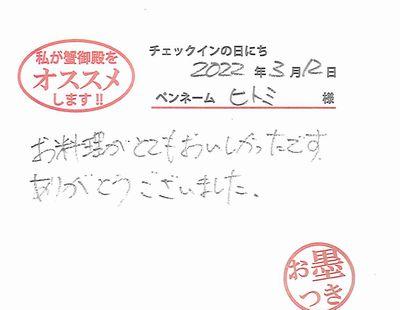 私が蟹御殿を
オススメ
します!!
チェックインの日にち
2022年3月12日
ペンネーム ヒトミ 様
お料理がとてもおいしかったです
ありがとうございました。
お墨
つき